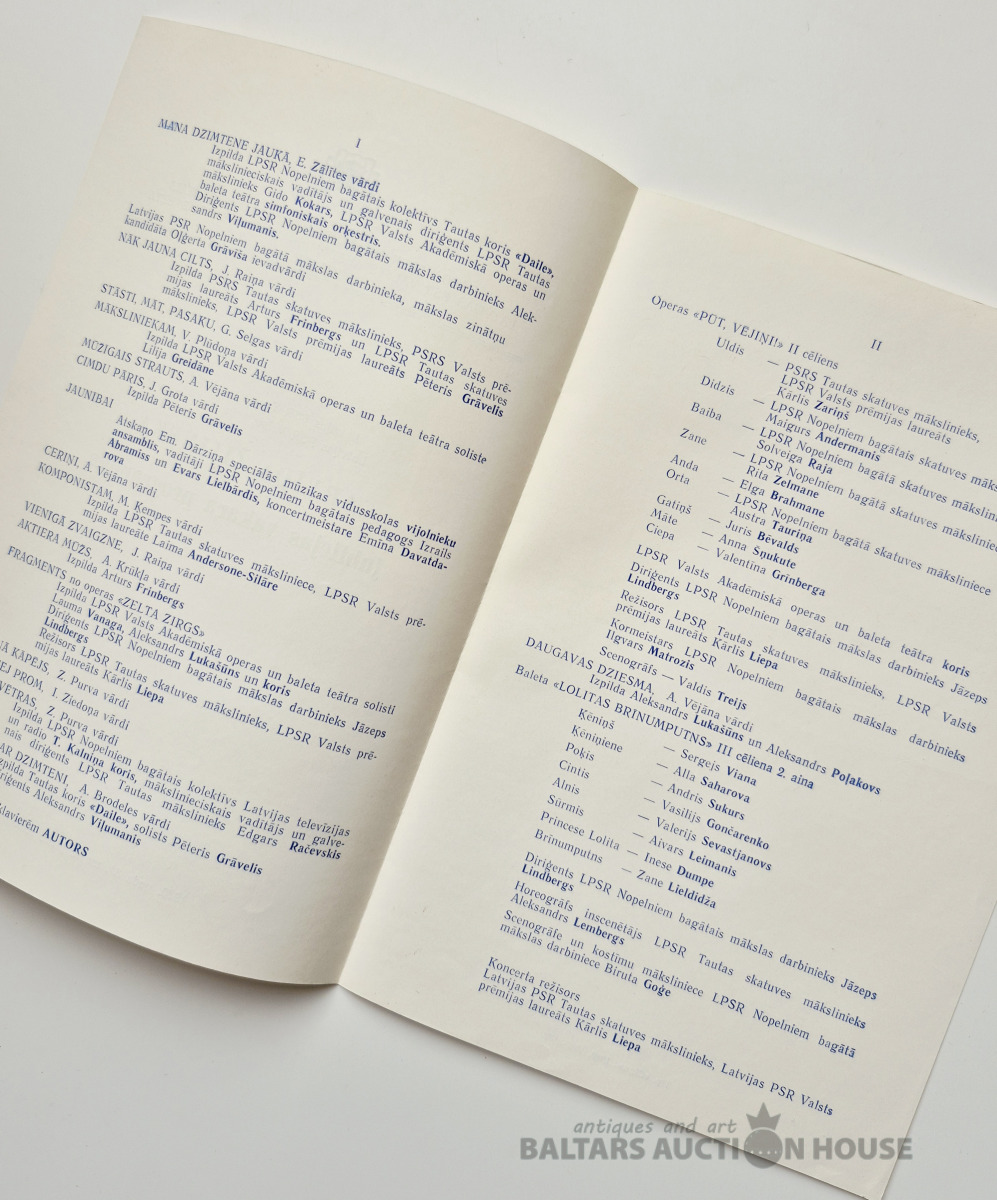 I
MANA DZIMTENE JAUKĀ, E. Zālītes vārdi
Izpilda LPSR Nopelniem bagātais kolektīvs Tautas koris «Daile»,
mākslinieciskais vadītājs un galvenais diriģents LPSR Tautas
mākslinieks Gido Kokars, LPSR Valsts Akadēmiskā operas un
baleta teātra simfoniskais orķestris.
Diriģents LPSR Nopelniem bagātais mākslas darbinieks Alek-
sandrs Viļumanis.
Latvijas PSR Nopelniem bagātā mākslas darbinieka, mākslas zinātņu
kandidāta Oļģerta Grāvīša ievadvārdi
NĀK JAUNA CILTS, J. Raiņa vārdi
Izpilda PSRS Tautas skatuves mākslinieks, PSRS Valsts prē-
mijas laureāts Arturs Frinbergs un LPSR Tautas skatuves
mākslinieks, LPSR Valsts prēmijas laureāts Pēteris Grāvelis
STĀSTI, MĀT, PASAKU, G. Selgas vārdi
MĀKSLINIEKAM, V. Plūdoņa vārdi
Izpilda LPSR Valsts Akadēmiskā operas un baleta teātra soliste
Lilija Greidāne
MŪŽĪGAIS STRAUTS, A. Vējāna vārdi
CIMDU PĀRIS, J. Grota vārdi
Izpilda Pēteris Grāvelis
JAUNĪBAI
Atskaņo Em. Dārziņa speciālās mūzikas vidusskolas vijolnieku
ansamblis, vadītāji LPSR Nopelniem bagātais pedagogs Izrails
Abramiss un Evars Lielbārdis, koncertmeistare Emīna Davatda-
rova
CERIŅI, A. Vējāna vārdi
KOMPONISTAM, M. Ķempes vārdi
Izpilda LPSR Tautas skatuves māksliniece, LPSR Valsts prē-
mijas laureāte Laima Andersone-Silāre
VIENĪGĀ ZVAIGZNE, J. Raiņa vārdi
AKTIERA MŪŽS, A. Krūkļa vārdi
Izpilda Arturs Frinbergs
FRAGMENTS no operas «ZELTA ZIRGS»
Izpilda LPSR Valsts Akadēmiskā operas un baleta teātra solisti
Lauma Vanaga, Aleksandrs Lukašūns un koris
Diriģents LPSR Nopelniem bagātais mākslas darbinieks Jāzeps
Lindbergs
Režisors LPSR Tautas skatuves mākslinieks, LPSR Valsts prē-
mijas laureāts Kārlis Liepa
KĀPĒJS, Z. Purva vārdi
EJ PROM, I. Ziedoņa vārdi
VĒTRAS, Z. Purva vārdi
Izpilda LPSR Nopelniem bagātais kolektīvs Latvijas televīzijas
un radio T. Kalniņa koris, mākslinieciskais vadītājs un galve-
nais diriģents LPSR Tautas mākslinieks Edgars Račevskis
DZIMTENI, A. Brodeles vārdi
Izpilda Tautas koris «Daile», solists Pēteris Grāvelis
Diriģents Aleksandrs Viļumanis
klavierēm AUTORS
II
Operas «PŪT, VĒJIŅI!» II cēliens
Uldis — PSRS Tautas skatuves mākslinieks,
LPSR Valsts prēmijas laureāts
Kārlis Zariņš
Didzis — LPSR Nopelniem bagātais skatuves
Maigurs Andermanis
Baiba — LPSR Nopelniem bagātā skatuves
Solveiga Raja
Zane — LPSR Nopelniem bagātā skatuves māksliniece
Rita Zelmane
Anda — Elga Brahmane
Orta — LPSR Nopelniem bagātā skatuves māksliniece
Austra Tauriņa
Gatiņš — Juris Bēvalds
Māte — Anna Sņukute
Ciepa — Valentīna Grinberga
LPSR Valsts Akadēmiskā operas un baleta teātra koris
Diriģents LPSR Nopelniem bagātais mākslas darbinieks Jāzeps
Lindbergs
Režisors LPSR Tautas skatuves mākslinieks, LPSR Valsts
prēmijas laureāts Kārlis Liepa
Kormeistars LPSR Nopelniem bagātais mākslas darbinieks
Ilgvars Matrozis
Scenogrāfs — Valdis Treijs
DAUGAVAS DZIESMA, A. Vējāna vārdi
Izpilda Aleksandrs Lukašūns un Aleksandrs Poļakovs
Baleta «LOLITAS BRĪNUMPUTNS» III cēliena 2. aina
Ķēniņš — Sergejs Viana
Ķēniņiene — Alla Saharova
Poķis — Andris Sukurs
Cintis — Vasilijs Gončarenko
Alnis — Valerijs Sevastjanovs
Sūrmis — Aivars Leimanis
Princese Lolita — Inese Dumpe
Brīnumputns — Zane Lieldidža
Diriģents LPSR Nopelniem bagātais mākslas darbinieks Jāzeps
Lindbergs
Horeogrāfs inscenētājs LPSR Tautas skatuves mākslinieks
Aleksandrs Lembergs
Scenogrāfe un kostīmu māksliniece LPSR Nopelniem bagātā
mākslas darbiniece Biruta Goģe
Koncerta režisors
Latvijas PSR Tautas skatuves mākslinieks, Latvijas PSR Valsts
prēmijas laureāts Kārlis Liepa
antiques and art
BALTARS AUCTION HOUSE